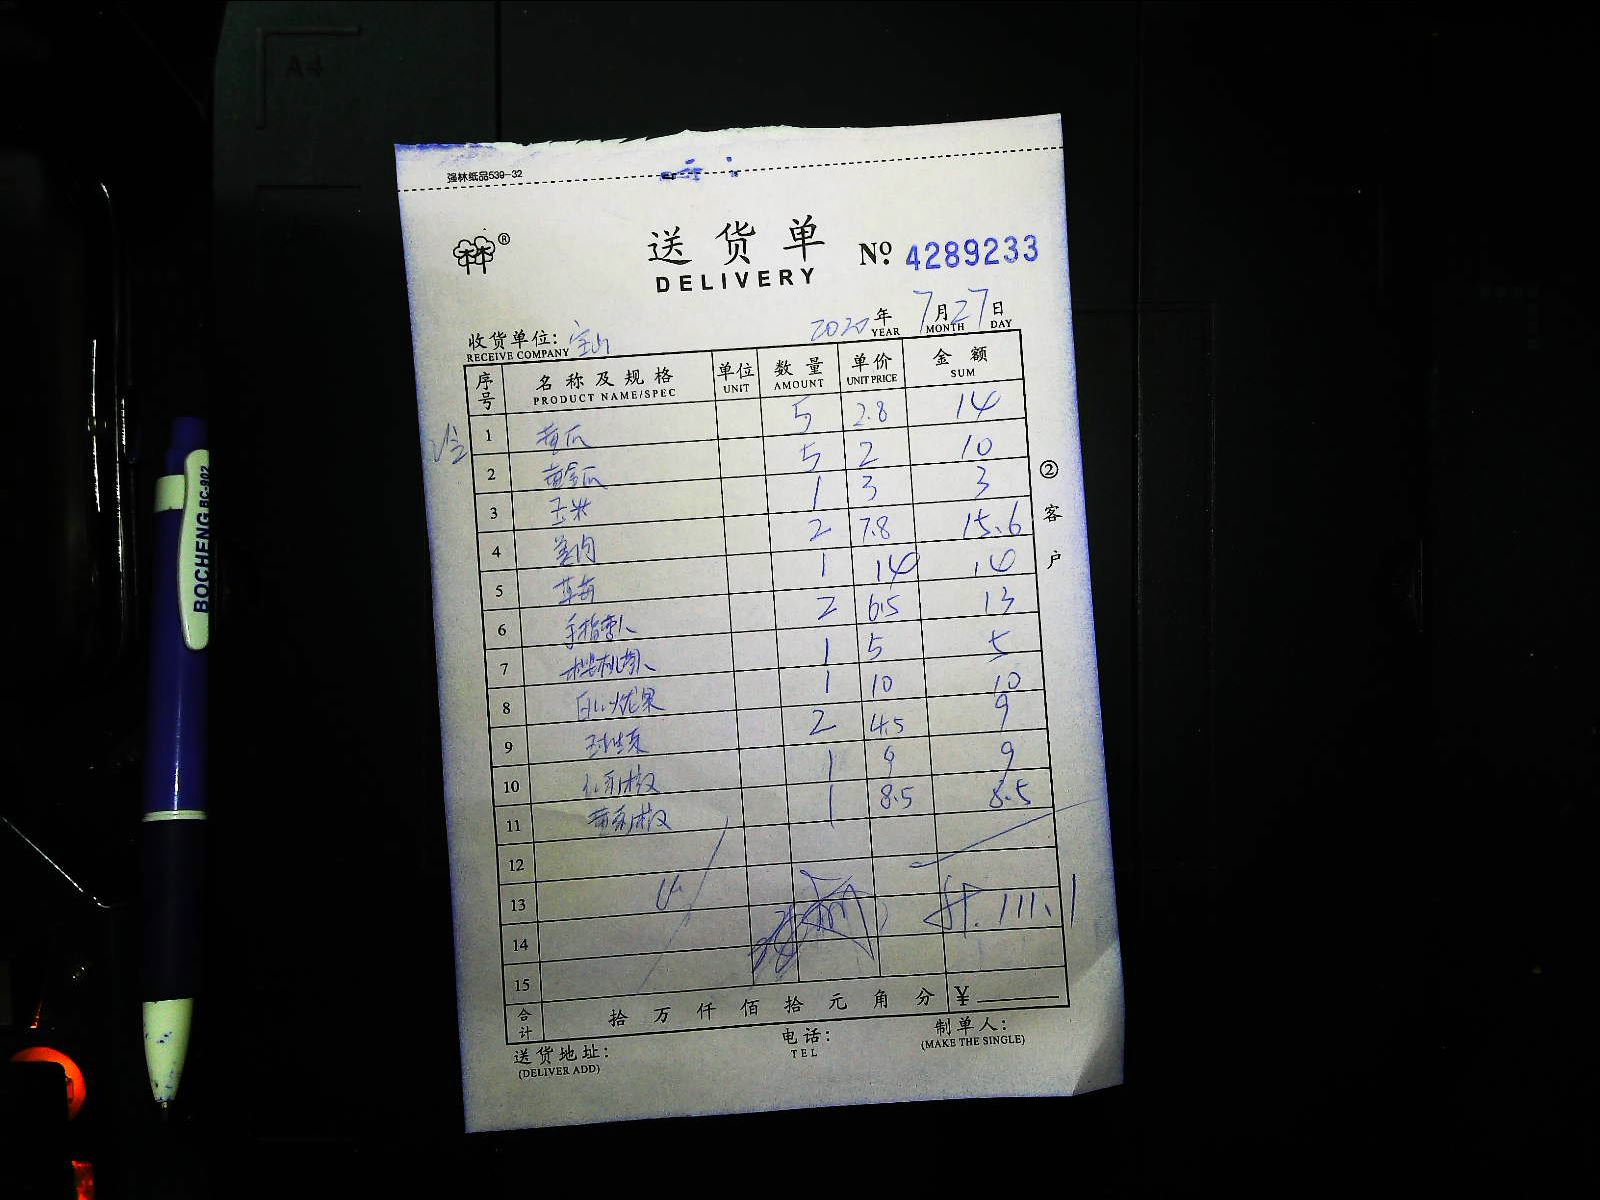 A4
强林纸品539-32
送货单
DELIVERY
Nº 4289233
收货单位: 宝山
RECEIVE COMPANY
2020 年 7 月 27 日
YEAR MONTH DAY
序号 名称及规格 单位 数量 单价 金额
PRODUCT NAME/SPEC UNIT AMOUNT UNIT PRICE SUM
1 黄瓜 5 2.8 14
2 黄金瓜 5 2 10
3 玉米 1 3 3
4 姜肉 2 7.8 15.6
5 草莓 1 14 14
6 手指萝卜 2 6.5 13
7 樱桃萝卜 1 5 5
8 1 10 10
9 2 4.5 9
10 1 9 9
11 1 8.5 8.5
12
13
14
15
111.1
合计 拾 万 仟 佰 拾 元 角 分 ¥
送货地址:
(DELIVER ADD)
电话:
TEL
制单人:
(MAKE THE SINGLE)
② 客户
BOCHENG BC-902